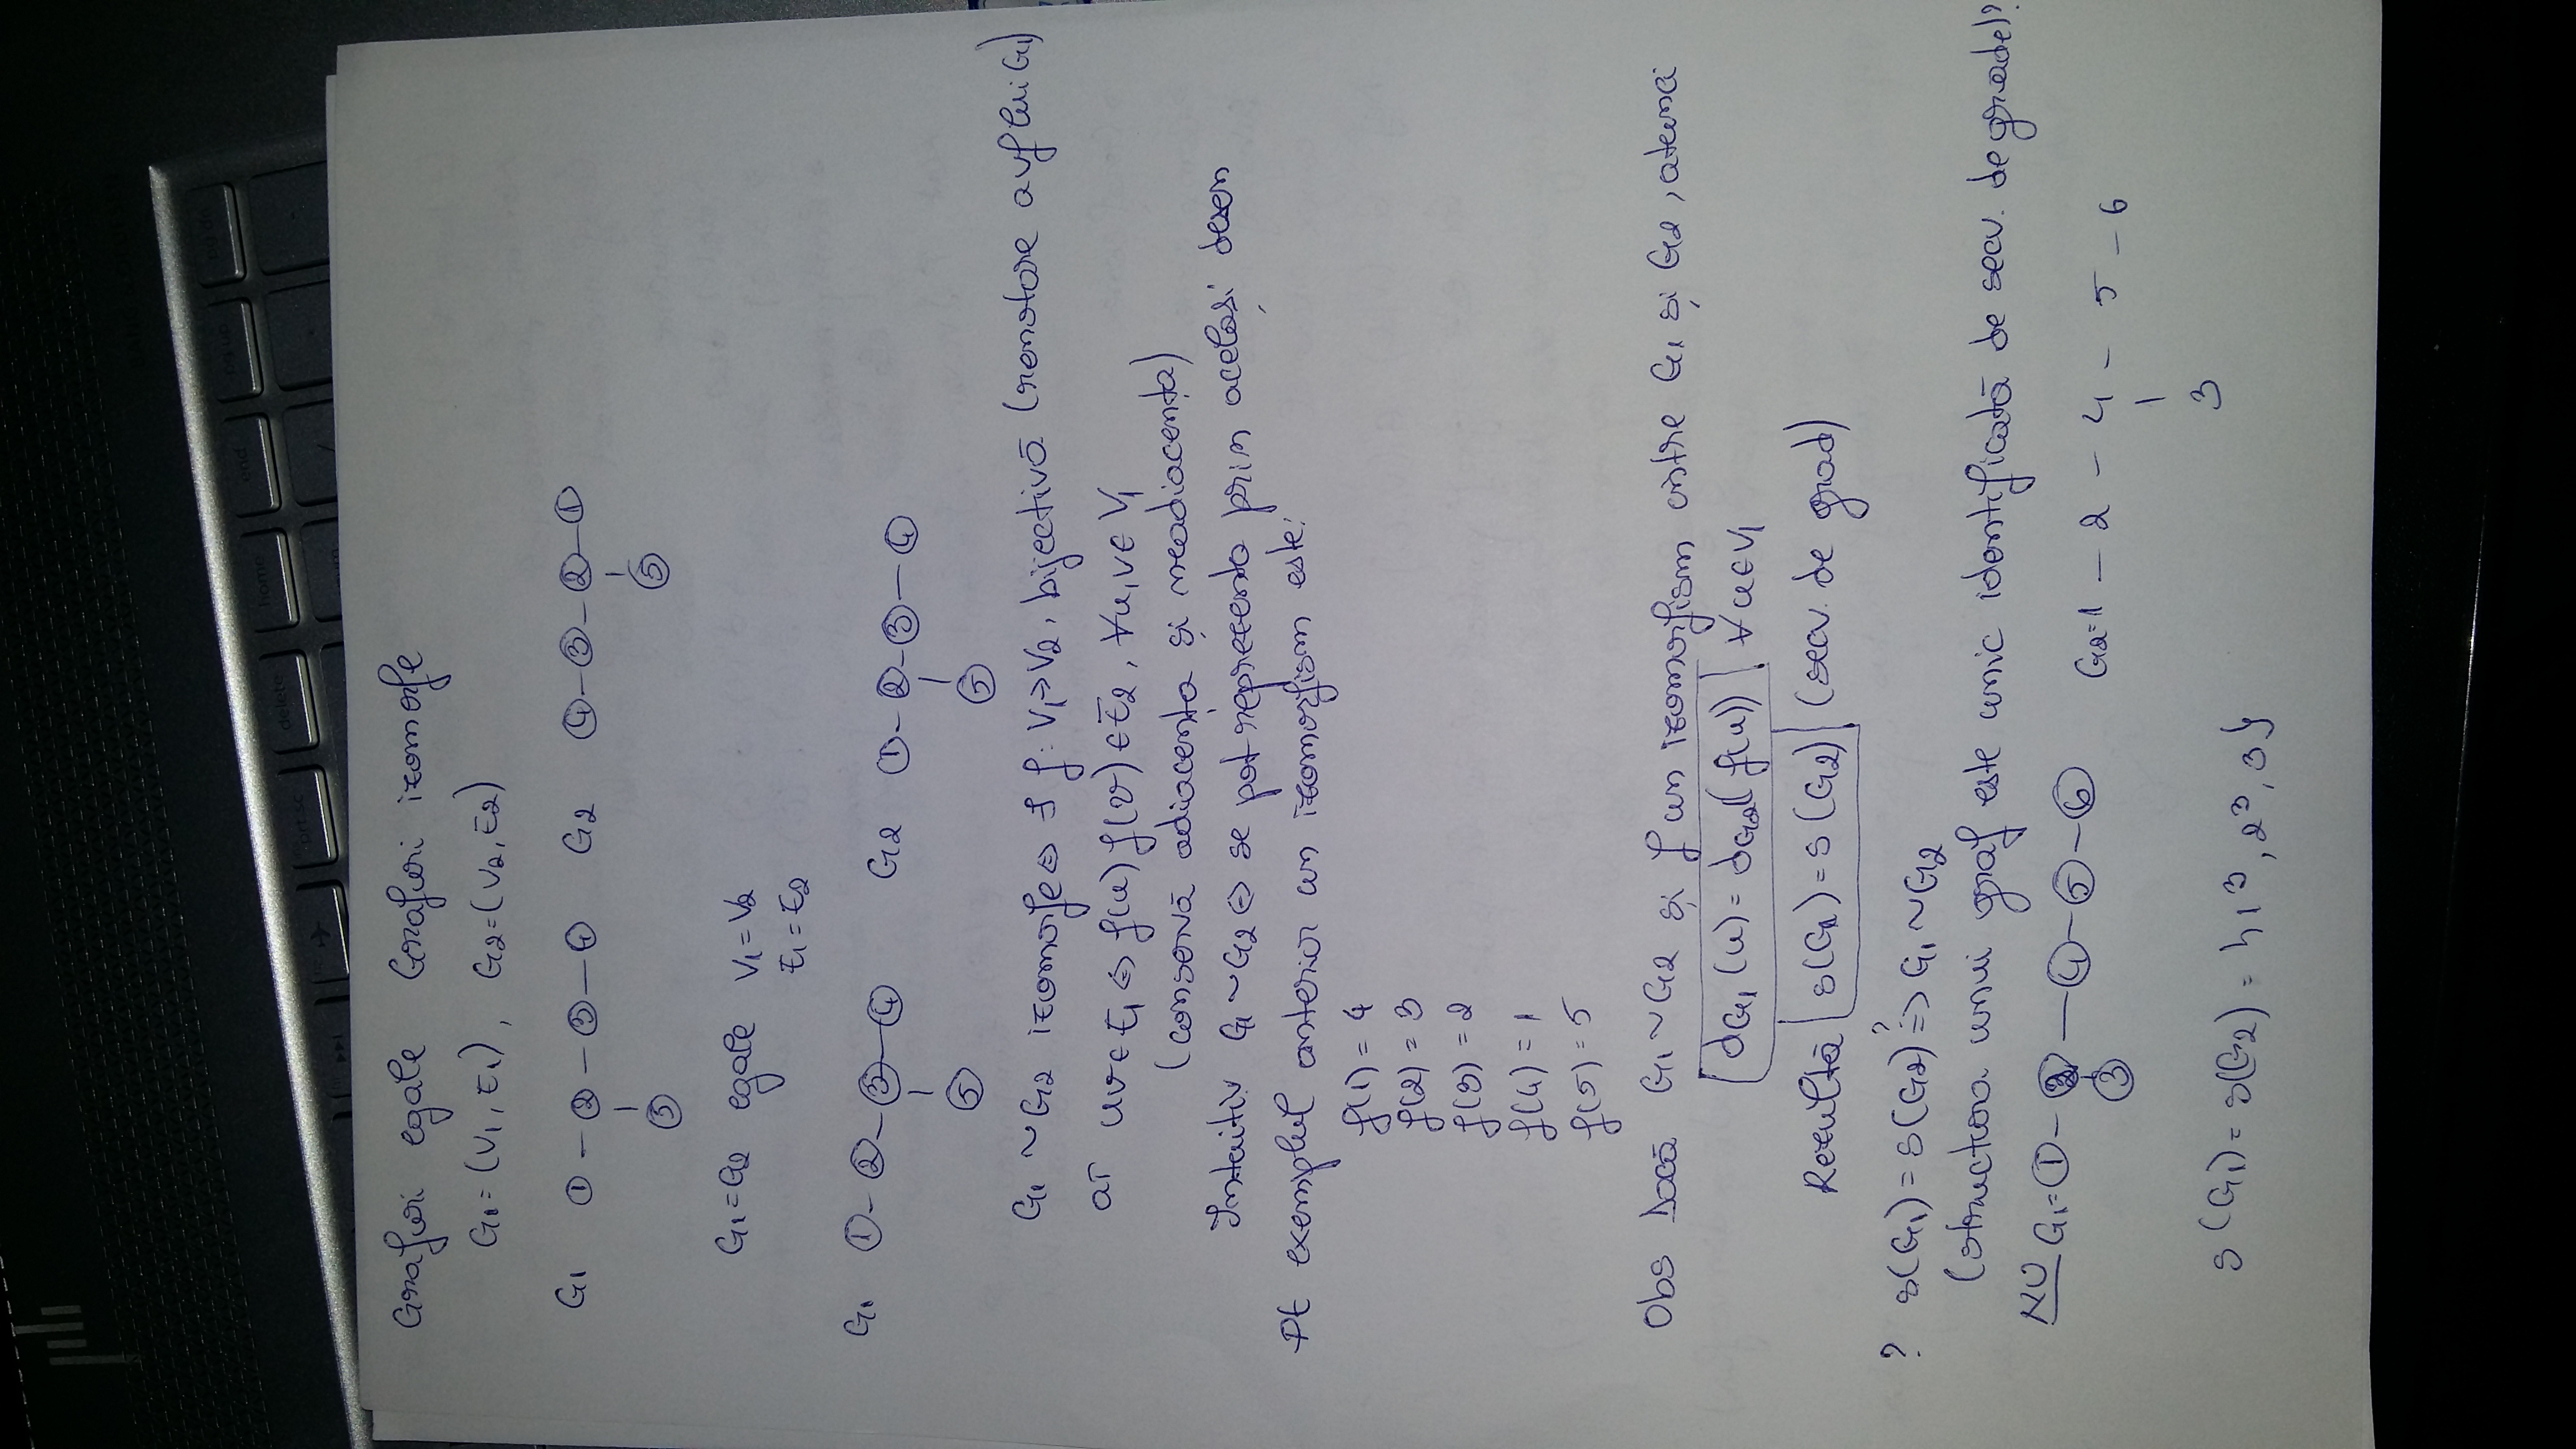 Grafuri egale Grafuri izomorfe
G1 = (V1, E1), G2 = (V2, E2)
G1 ① - ② - ③ - ④ G2 ④ - ③ - ② - ①
⑤ ⑤
G1 = G2 egale V1 = V2
E1 = E2
G1 ① - ② - ③ - ④ G2 ① - ② - ③ - ④
⑤ ⑤
G1 ~ G2 izomorfe ⇔ ∃ f: V1 → V2, bijectivă (renotare a vf lui G1)
aî uv ∈ E1 ⇔ f(u) f(v) ∈ E2, ∀ u, v ∈ V1
(conservă adiacența și neadiacența)
Intuitiv G1 ~ G2 ⇔ se pot reprezenta prin același desen
Pt exemplul anterior un izomorfism este:
f(1) = 4
f(2) = 3
f(3) = 2
f(4) = 1
f(5) = 5
Obs Dacă G1 ~ G2 și f un izomorfism între G1 și G2, atunci
dG1(u) = dG2(f(u)) ∀ u ∈ V1
Rezultă s(G1) = s(G2) (secv. de grad)
? s(G1) = s(G2) ?⇒ G1 ~ G2
(structura unui graf este unic identificată de secv. de grade)?
NU G1 = ① - ② - ④ - ⑤ - ⑥
③
G2 = 1 - 2 - 4 - 5 - 6
3
s(G1) = s(G2) = {1³, 2³, 3}